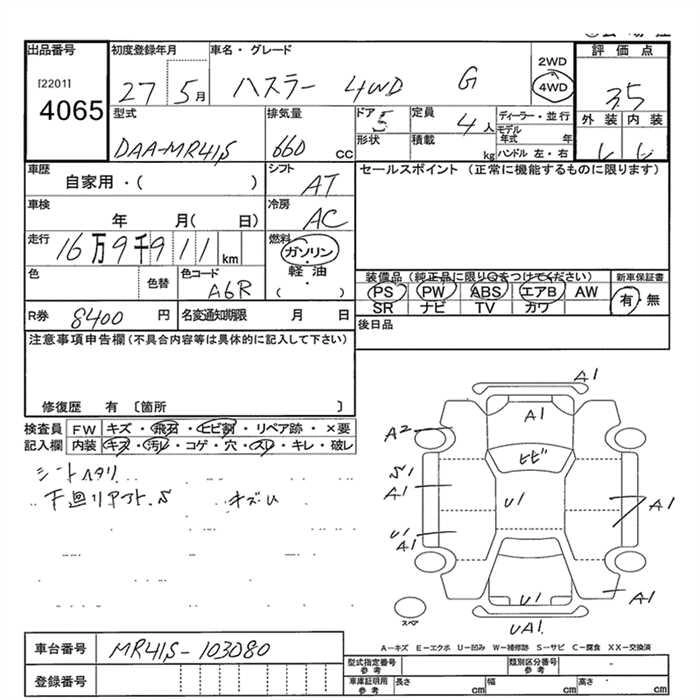 出品番号 初度登録年月 車名・グレード 評価点
[2201] 4065 27 5月 ハスラー 4WD G 2WD 4WD 3.5
型式 排気量 ドア 5 定員 4人 ディーラー・並行 外装 内装
DAA-MR41S 660 cc 形状 積載 kg モデル年式 年 ハンドル 左・右
車歴 シフト セールスポイント (正常に機能するものに限ります)
自家用・( ) AT
車検 年 月( 日) 冷房 AC
走行 16万9千911km 燃料 ガソリン・軽油・( )
色 色替 色コード A6R
装備品 (純正品に限り○をつけてください) 新車保証書
PS PW ABS エアB AW 有・無
SR ナビ TV カワ
R券 8400円 名変通知期限 月 日 後日品
注意事項申告欄 (不具合内容等は具体的に記入して下さい)
修復歴 有 〔箇所 〕
検査員 FW キズ・飛石・ヒビ割・リペア跡・×要
記入欄 内装 キズ・汚レ・コゲ・穴・スレ・キレ・破レ
シートヘタリ
下廻り キズU
A1
A1
A2
ヒビ
S1
A1 U1 A1
U1
A1
U1 A1
スペア UA1.
A-キズ E-エクボ U-凹み W-補修跡 S-サビ C-腐食 XX-交換済
車台番号 MR41S-103080
型式指定番号 参考 類別区分番号 参考 -
登録番号 車庫証明用 参考 長さ cm 幅 cm 高さ cm